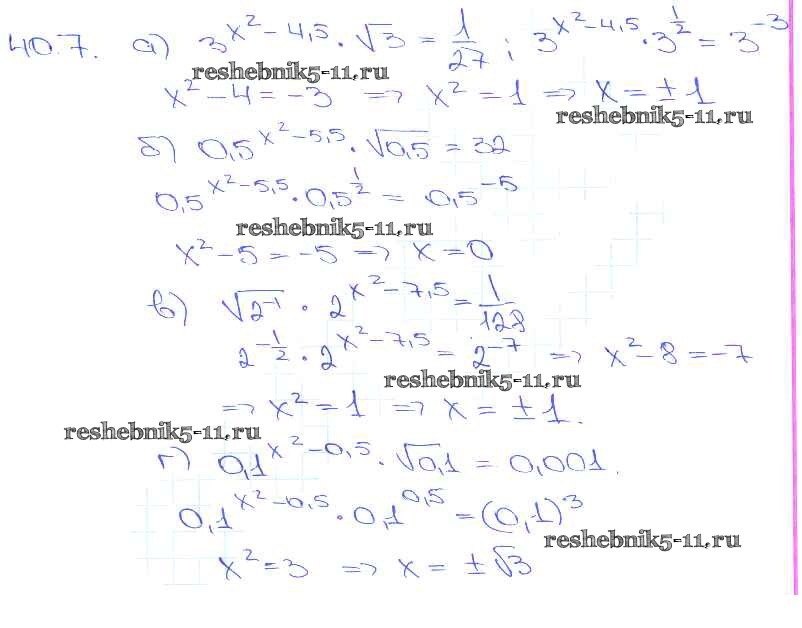 40.7. а) 3^(x²-4,5) · √3 = 1/27 ; 3^(x²-4,5) · 3^(1/2) = 3^(-3)
reshebnik5-11.ru
x² - 4 = -3 => x² = 1 => x = ±1
reshebnik5-11.ru
б) 0,5^(x²-5,5) · √0,5 = 32
0,5^(x²-5,5) · 0,5^(1/2) = 0,5^(-5)
reshebnik5-11.ru
x² - 5 = -5 => x = 0
в) √2⁻¹ · 2^(x²-7,5) = 1/128
2^(-1/2) · 2^(x²-7,5) = 2^(-7) => x² - 8 = -7
reshebnik5-11.ru
=> x² = 1 => x = ±1.
reshebnik5-11.ru
г) 0,1^(x²-0,5) · √0,1 = 0,001.
0,1^(x²-0,5) · 0,1^(0,5) = (0,1)³
reshebnik5-11.ru
x² = 3 => x = ±√3